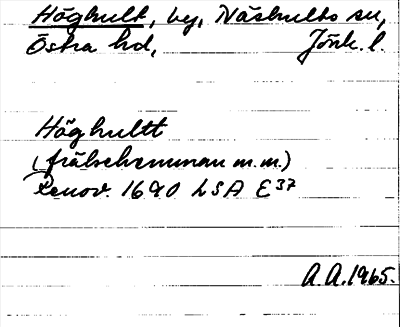 Höghult, by, Näshults sn,
Östra hd, Jönk. l.
Höghultt
(frälsehemman m.m.)
Renov. 1690 LSA E³⁷
A.A. 1965.